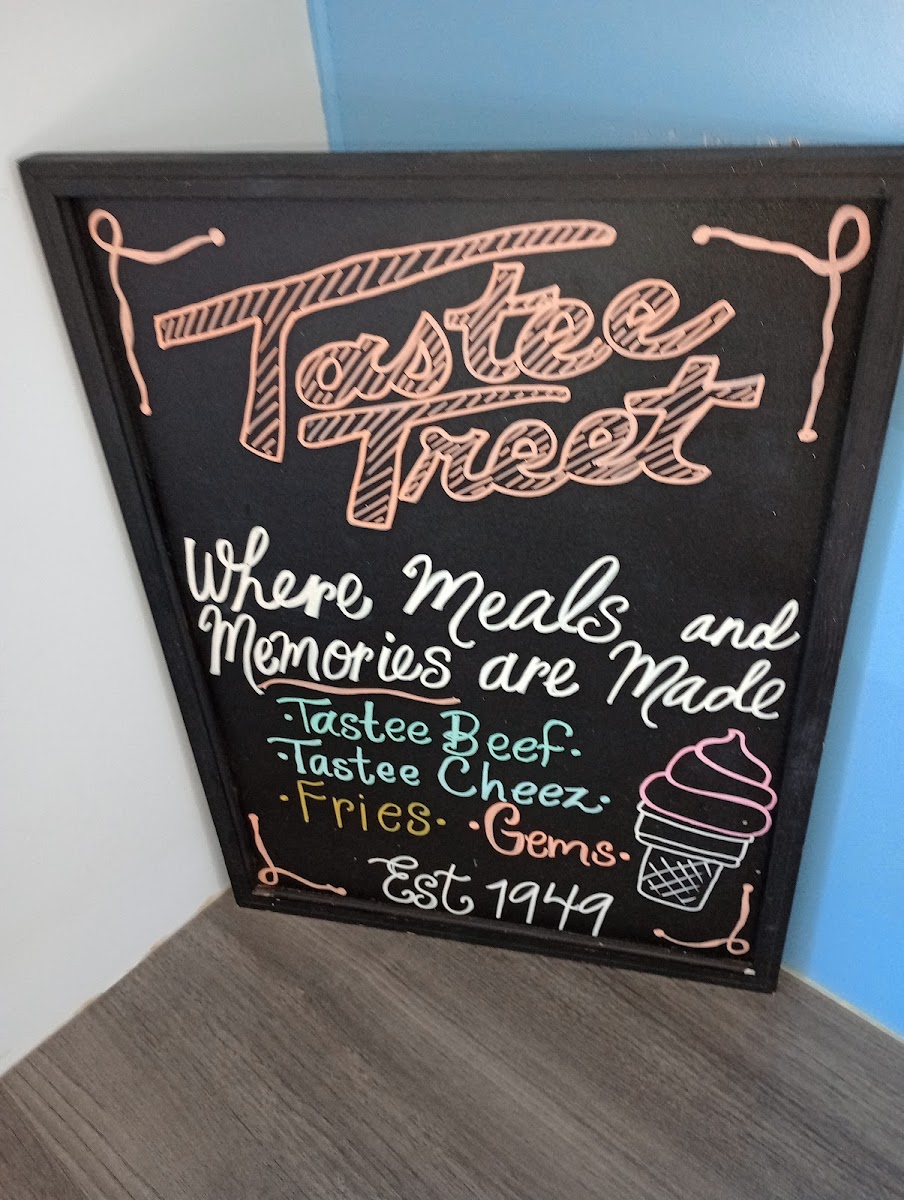 Tastee
Treet
Where Meals and
Memories are Made
·Tastee Beef·
·Tastee Cheez·
·Fries· ·Gems·
Est 1949